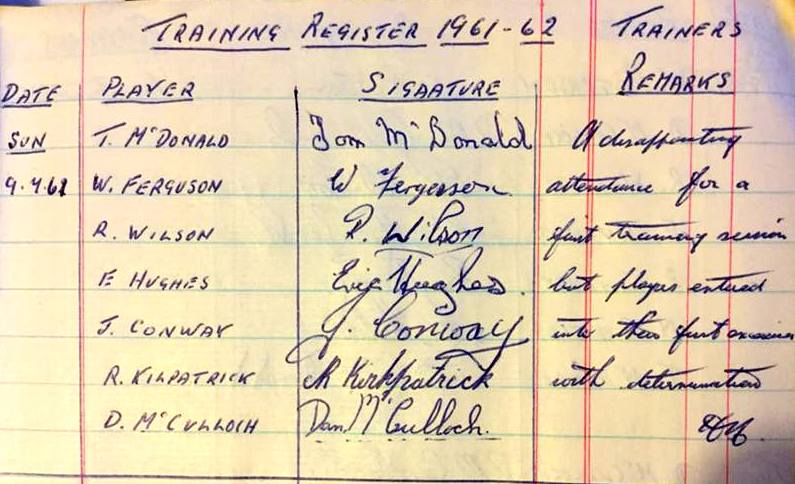 TRAINING REGISTER 1961-62 TRAINERS REMARKS
DATE PLAYER SIGNATURE
SUN T. McDONALD Tom McDonald A disappointing
9.4.61 W. FERGUSON W Fergerson attendance for a
R. WILSON R. Wilson first training session
E HUGHES Eric Hughes. but players entered
J. CONWAY J. Conway into their first exercises
R. KILPATRICK R Kirkpatrick with determination
D. McCULLOCH Dan McCulloch.